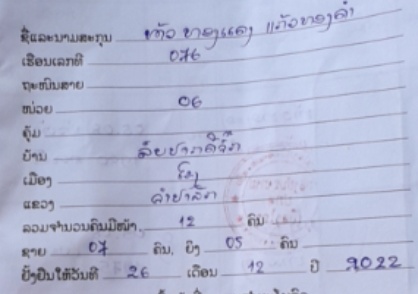 ຊື່ແລະນາມສະກຸນ ທ້າວ ທອງແດງ ແກ້ວທອງຄຳ
ເຮືອນເລກທີ 076
ຖະໜົນສາຍ
ໜ່ວຍ 06
ຄຸ້ມ
ບ້ານ
ເມືອງ
ແຂວງ ຈຳປາສັກ
ລວມຈຳນວນຄົນມີໜ້າ 12 ຄົນ
ຊາຍ 07 ຄົນ, ຍິງ 05 ຄົນ
ຢັ້ງຢືນໃຫ້ວັນທີ 26 ເດືອນ 12 ປີ 2022